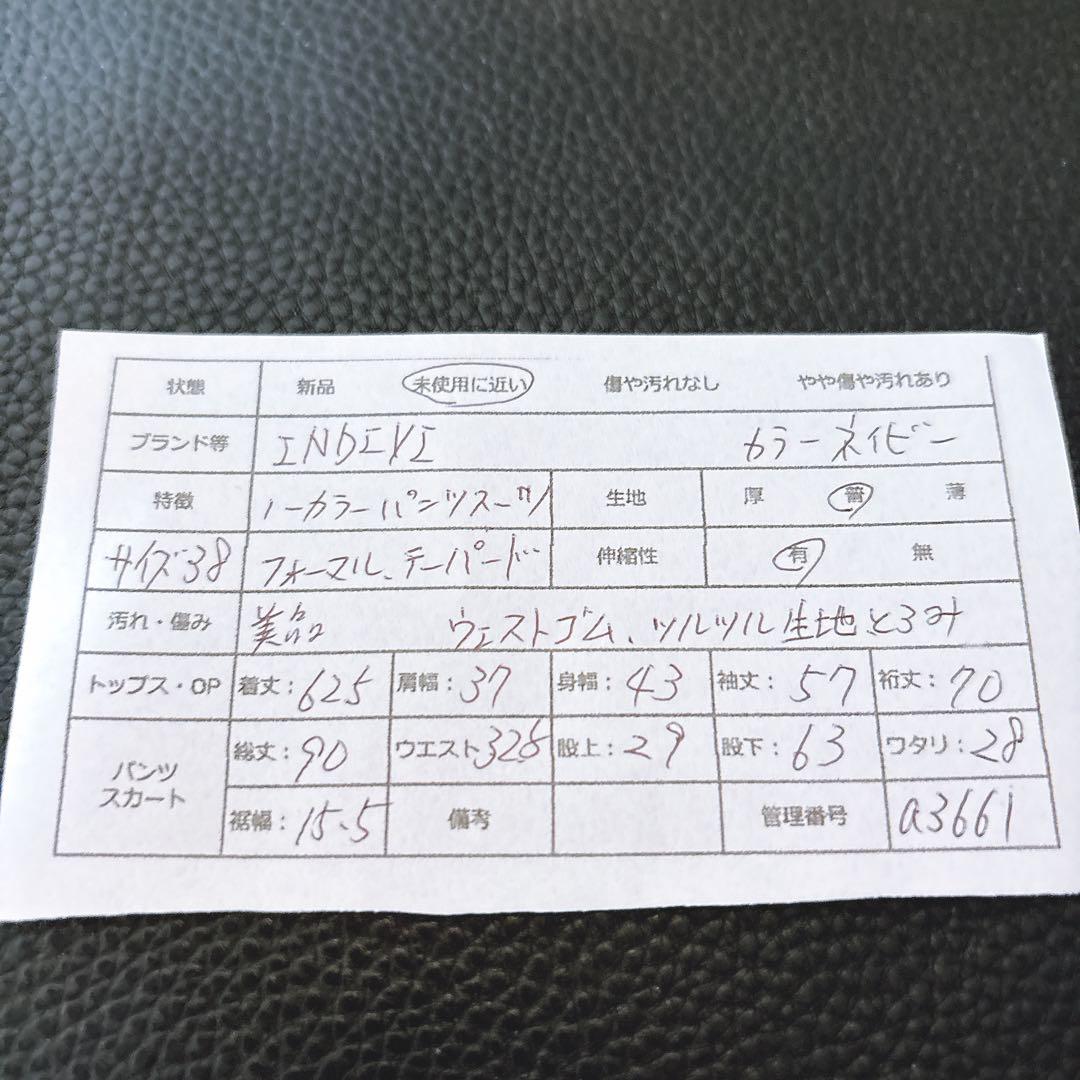 状態 新品 未使用に近い 傷や汚れなし やや傷や汚れあり
ブランド等 INDIVI カラーネイビー
特徴 ノーカラーパンツスーツ 生地 厚 普 薄
サイズ38 フォーマル、テーパード 伸縮性 有 無
汚れ・傷み 美品 ウエストゴム、ツルツル生地とろみ
トップス・OP 着丈:625 肩幅:37 身幅:43 袖丈:57 裄丈:70
パンツ
スカート
総丈:90 ウエスト325 股上:29 股下:63 ワタリ:28
裾幅:15.5 備考 管理番号 a3661